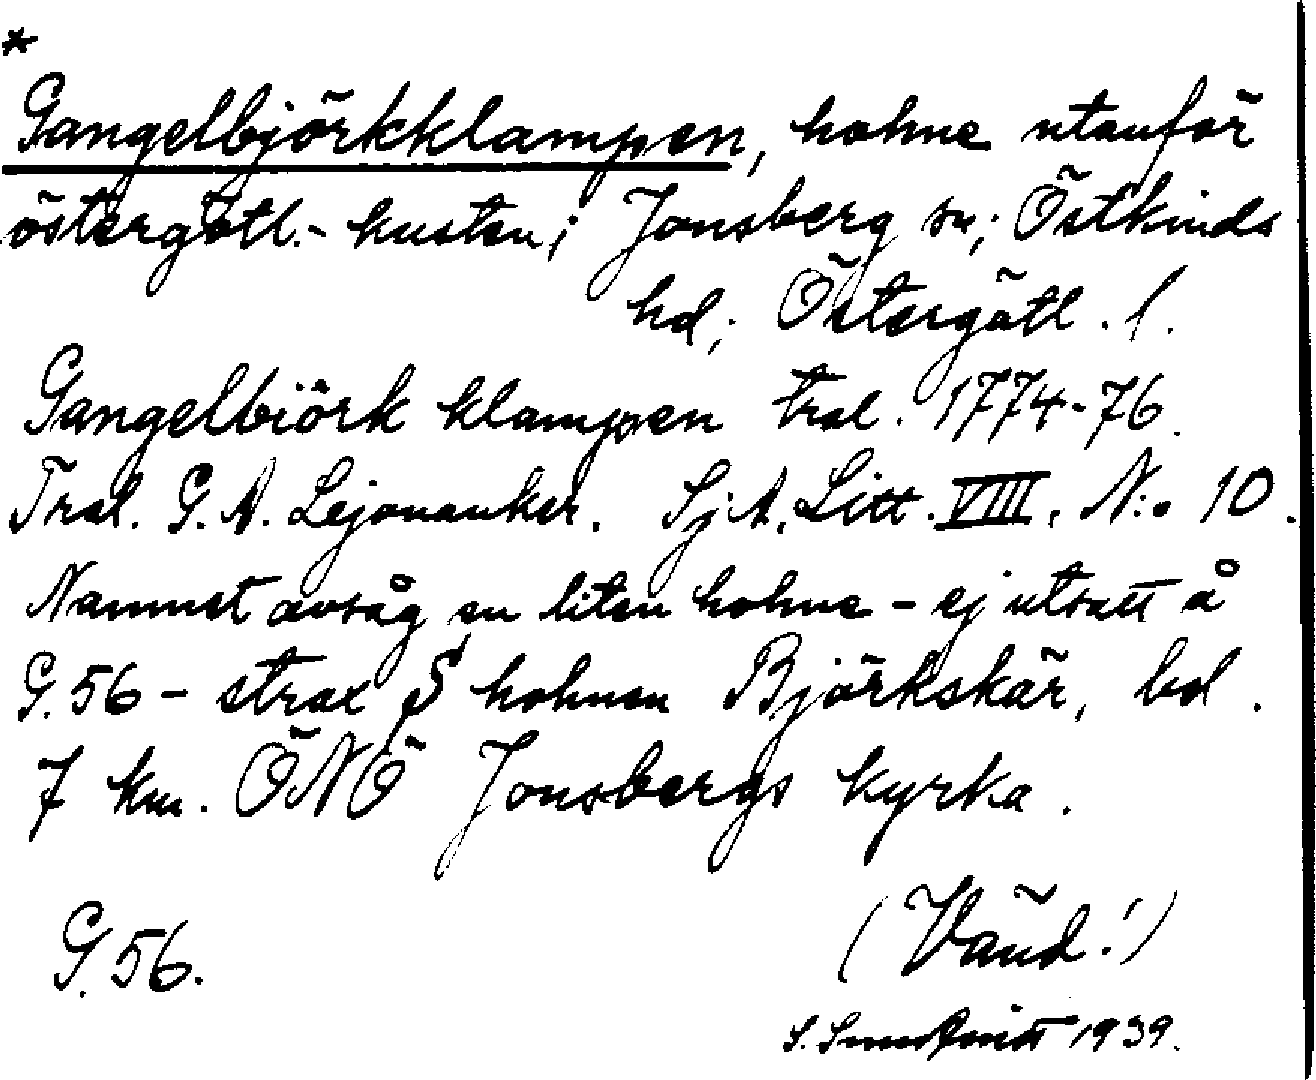 *
Gangelbjörkklampen, holme utanför
östergötl.-kusten; Jonsberg sn; Östkinds
hd; Östergötl. l.
Gangelbiörk klampen tral. 1774-76.
Tral. G. A. Lejonanker. Sj.A. Litt. VIII, N:o 10.
Namnet avsåg en liten holme - ej utsatt å
G. 56 - strax S holmen Björkskär, bel.
7 km. ÖNÖ Jonsbergs kyrka.
(Vänd!)
G. 56.
1939.